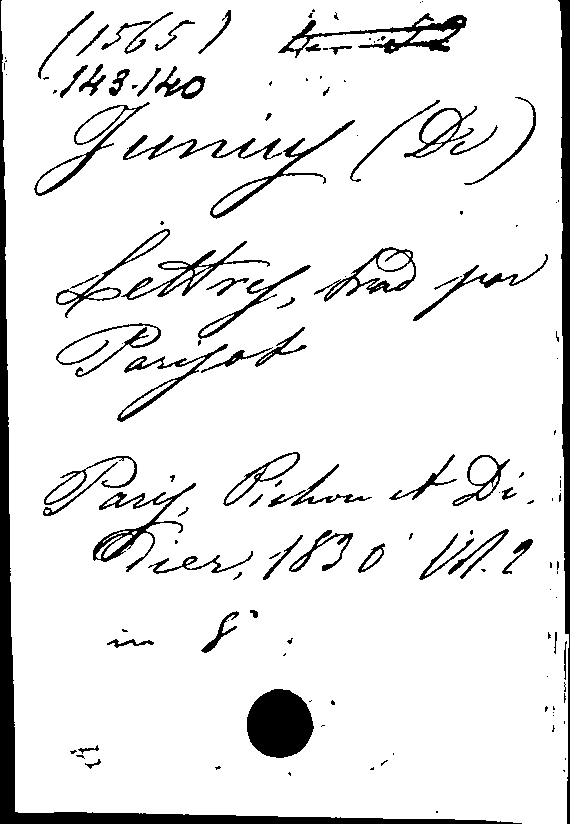 (1565)
143-140
Junius (De)
Lettres, trad par
Parisot
Paris, Pichon et Di-
dier, 1830 Vol. 2
in 8°